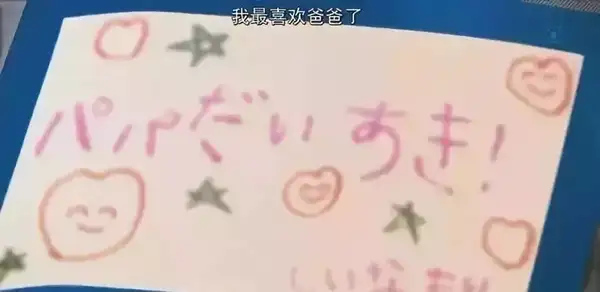 我最喜欢爸爸了
パパだいすき!
しいな